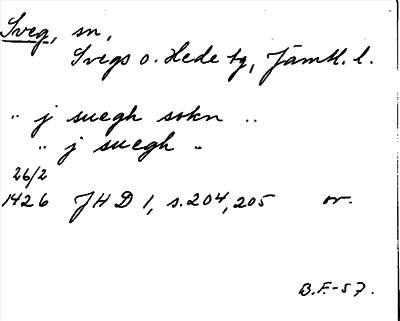 Sveg, sn,
Svegs o. Hede tg, Jämtl. l.
" j suegh sokn "
" j suegh "
26/2
1426 JHD 1, s. 204, 205 or.
B.F.-57.